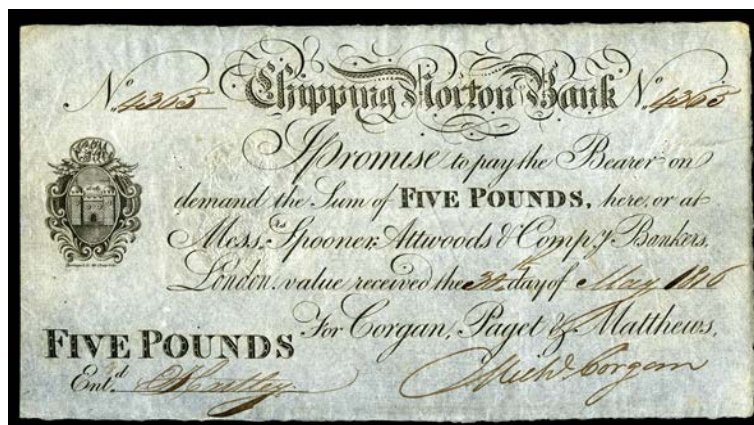 No. 4365 Chipping Norton Bank No. 4365
I promise to pay the Bearer on
demand the Sum of FIVE POUNDS, here, or at
Messrs. Spooner, Attwoods & Compy. Bankers,
London, value received the 30th day of May 1816
For Corgan, Paget & Matthews,
FIVE POUNDS
Entd. Michd. Corgan